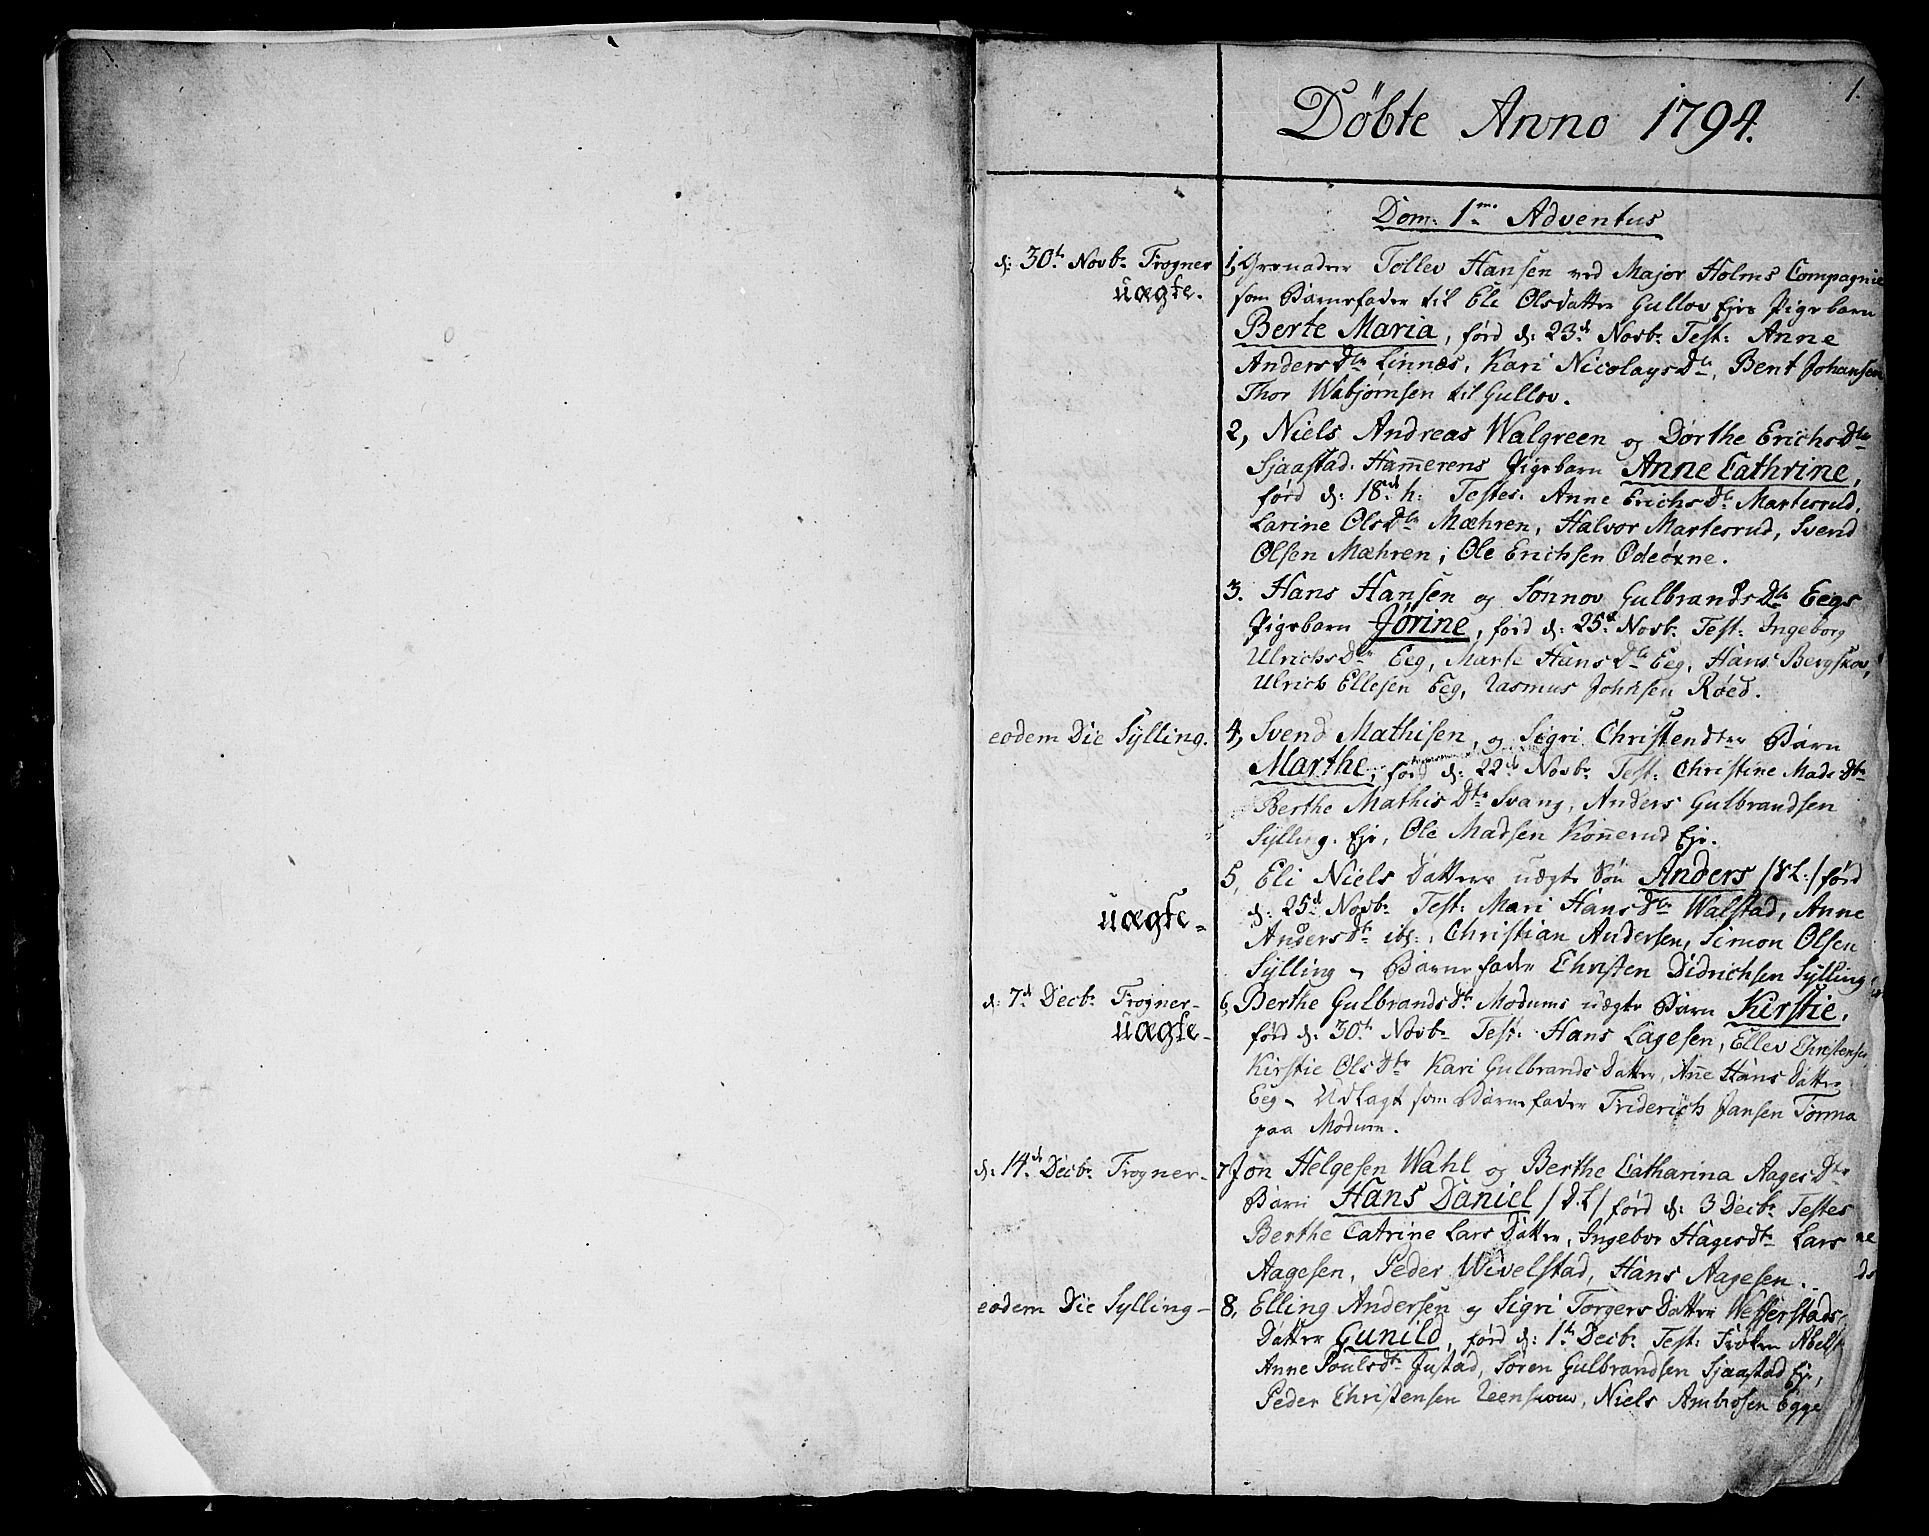 1.
Døbte Anno 1794.
Dom: 1.ma Adventus
d: 30.th Novbr Frogner
uægte.
1, Grenader Tollev Hansen ved Major Holms Compagnie
som Barnefader til Eli Olsdatter Gullov Eje Pigebarn
Berte Maria, fød d: 23.d Novbr Test: Anne
Anders Dtr Linnæs, Kari Nicolays Dtr, Bent Johansen
Thor Wæbjørnsen til Gullov.
2, Niels Andreas Walgreen og Dorthe Erichs Dtr
Sjaastad: Hammerens Pigebarn Anne Cathrine,
fød d: 18.d h: Testes: Anne Erichs Dtr Marterud,
Larine Ols Dtr Mæhren, Halvor Martesrud, Svend
Olsen Mæhren, Ole Erichsen Odeøxne.
3. Hans Hansen og Sønnov Gulbrands Dtr Eegs
Pigebarn Jørine, fød d: 25.d Novbr Test: Ingeborg
Ulrichs Dtr Eeg, Marte Hans Dtr Eeg, Hans Bergskov,
Ulrich Ellesen Eeg, Rasmus Johnsen Røed.
eodem Die Sylling.
4, Svend Mathisen, og Sigri Christendtr Barn
Marthe, fød d: 22.d Novbr Test: Christine Mads Dtr
Berthe Mathis Dtr Svang, Anders Gulbrandsen
Sylling Eje, Ole Madsen Konnerud Eje.
uægte-
5, Eli Niels Datters uægte Søn Anders fød
d: 25.d Novbr Test: Mari Hans Dtr Walstad, Anne
Anders Dtr ibd:, Christian Andersen, Simon Olsen
Sylling - Barnefader Christen Didrichsen Sylling
d: 7.d Decbr Frogner-
uægte-
6, Berthe Gulbrands Dtr Modums uægte Barn Kirstie,
fød d: 30.th Novbr Test: Hans Lagesen, Ellev Christensen
Kirstie Ols Dtr Kari Gulbrands Datter, Anne Hans Datter
Eeg - Udlagt som Barnefader Friderich Jansen Tormo
paa Modum.
d: 14.d Decbr Frogner-
7 Jon Helgesen Wahl og Berthe Catharina Aages Dtr
Barn Hans Daniel /D.L/ fød d: 3 Decbr Testes
Berthe Catrine Lars Datter, Ingebor Hagesdtr Lars
Aagesen, Peder Wivelstad, Hans Aagesen.
eodem Die Sylling-
8, Elling Andersen og Sigri Torgers Datter Wefferstads
Datter Gunild, fød d: 1.th Decbr Test:
Anne Poulsdtr Justad, Søren Gulbrandsen Sjaastad Eje,
Peder Christensen Reenskoug, Niels Ambrosen Egge